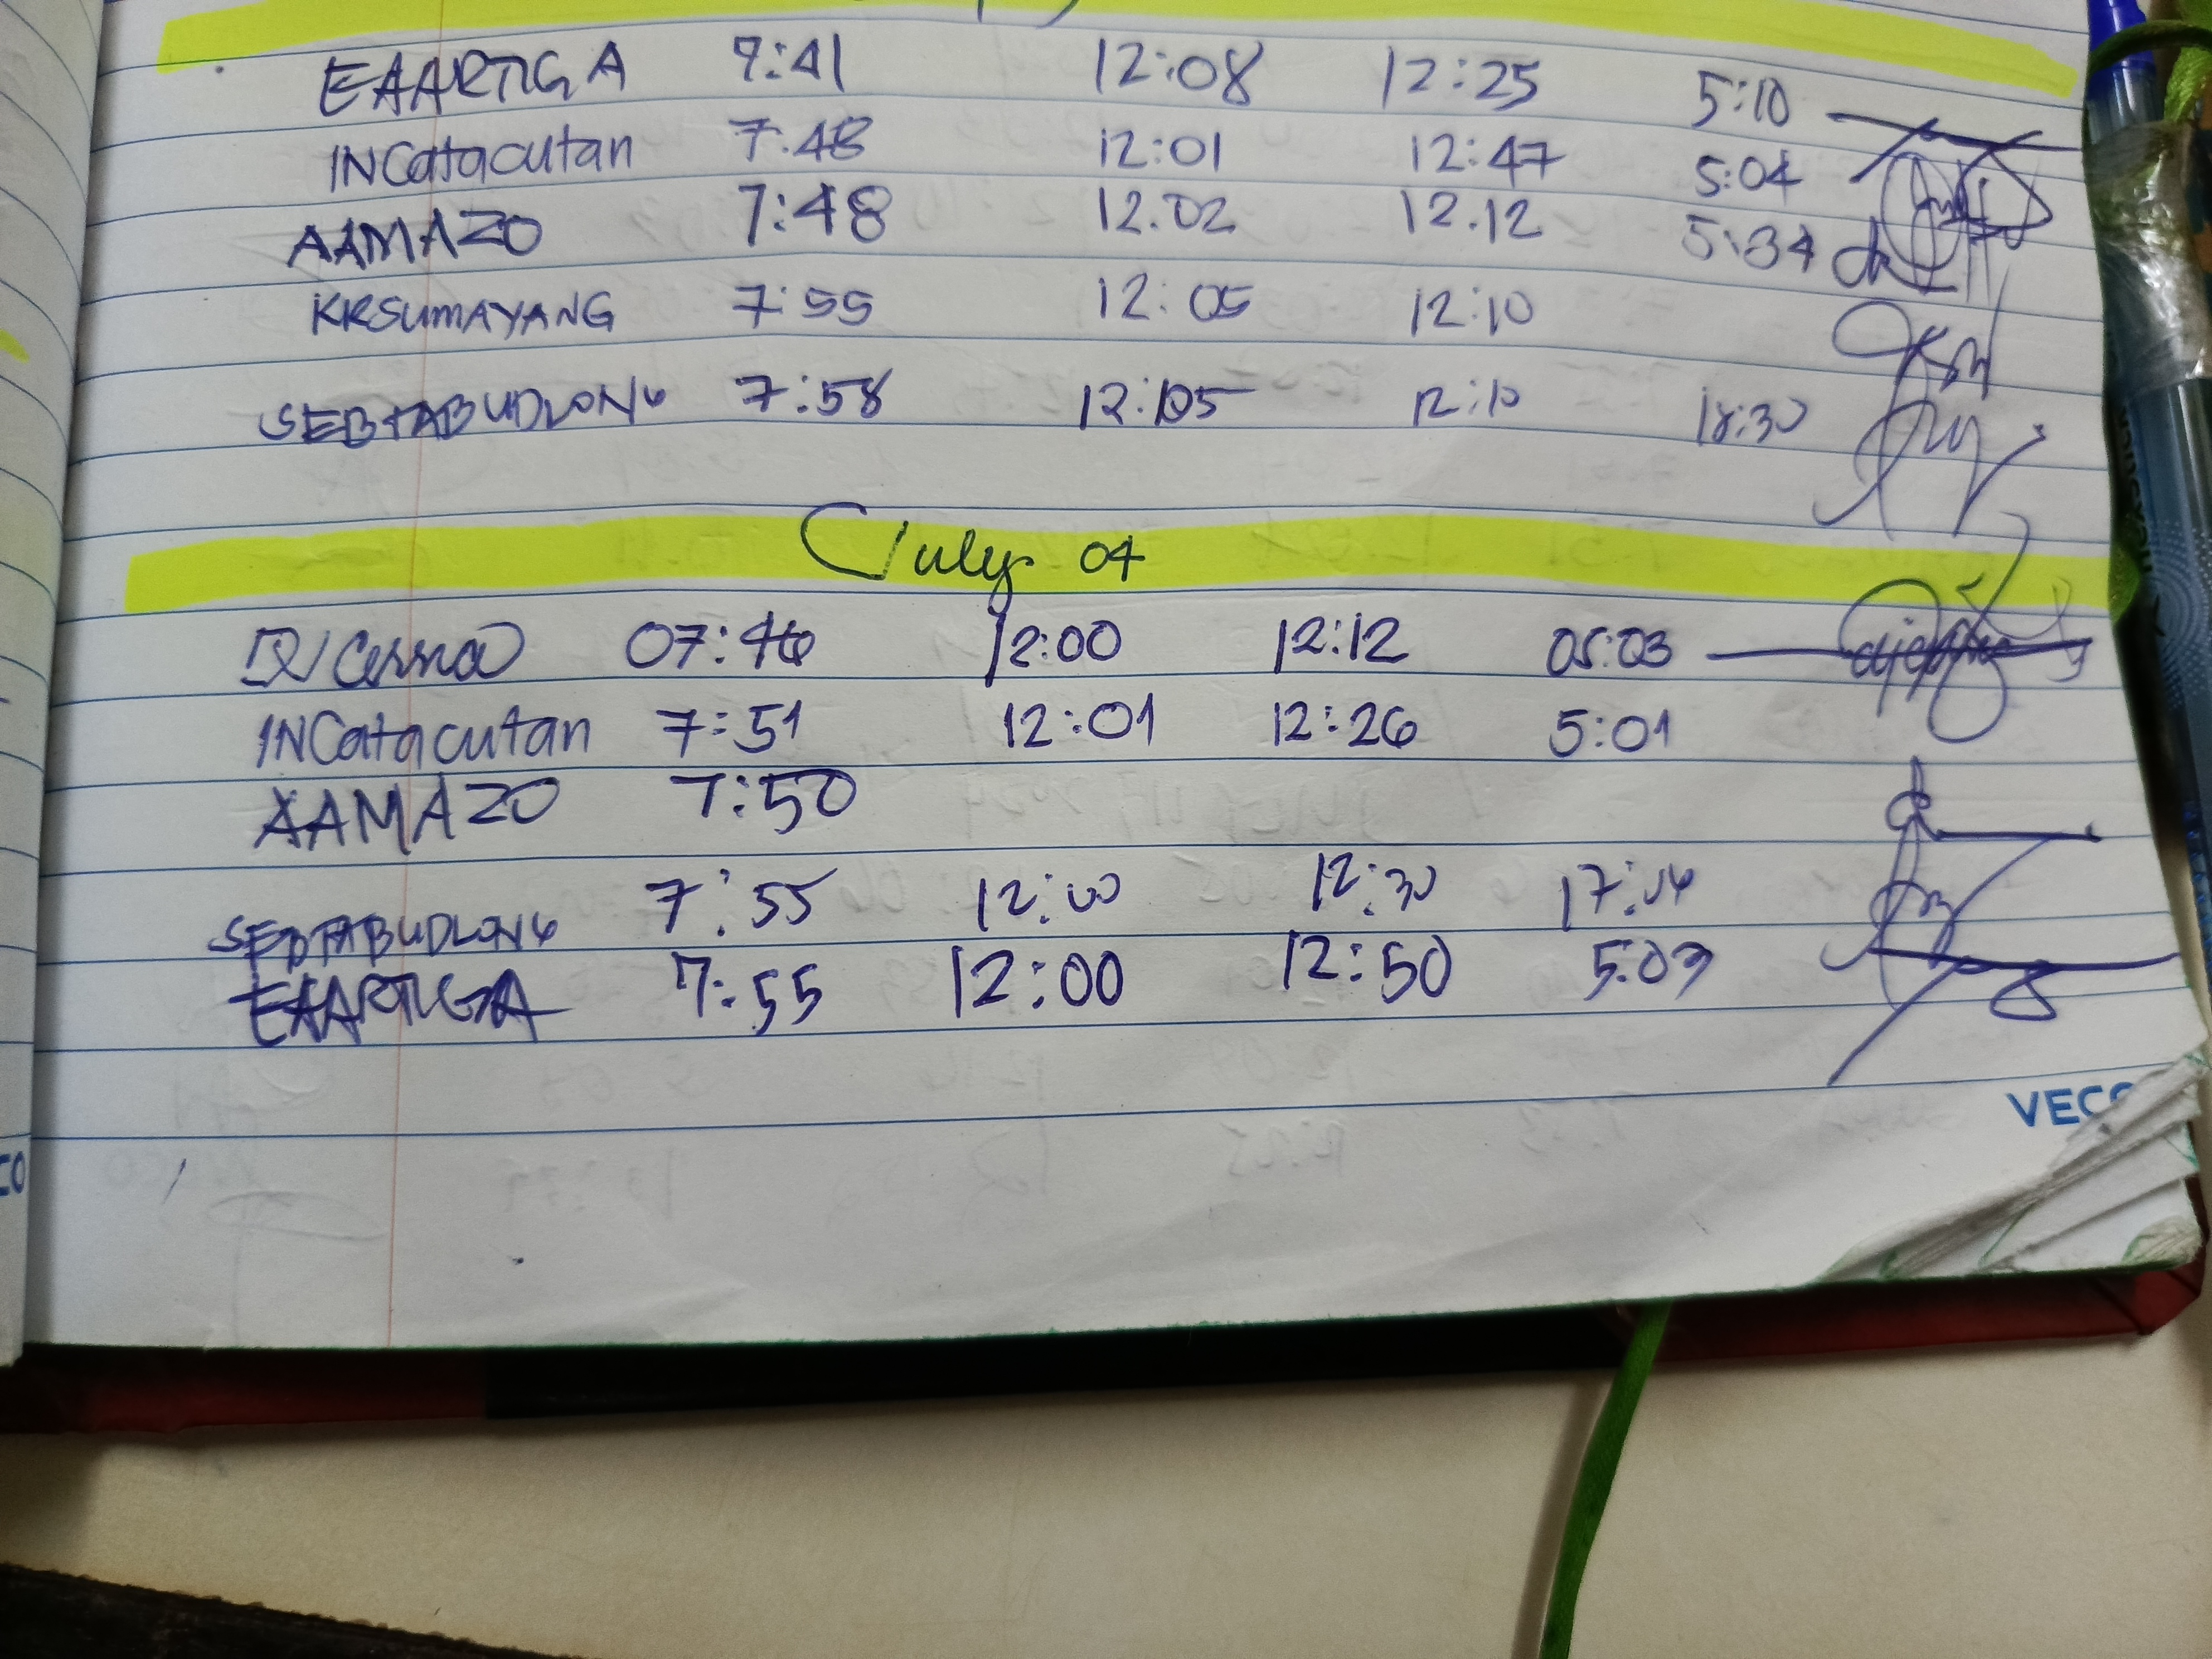 EAARTIGA 7:41 12:08 12:25 5:10
INCatacutan 7:48 12:01 12:47 5:04
AAMAZO 7:48 12.02 12.12 5:34
KRSUMAYANG 7:55 12:05 12:10
SEBTABUDLONG 7:58 12:05 12:10 18:30
July 04
07:46 12:00 12:12 05:03
INCatacutan 7:51 12:01 12:26 5:01
AAMAZO 7:50
SEBTABUDLONG 7:55 12:00 12:30 17:04
EAARTIGA 7:55 12:00 12:50 5:03
VECO
CO